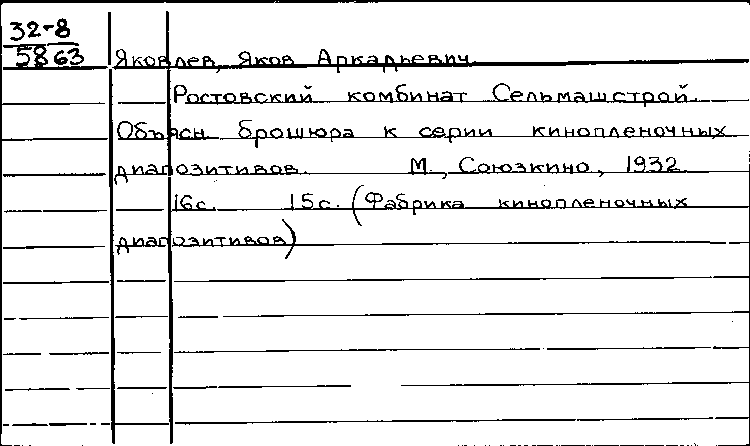 32-8
5863
Яковлев, Яков Аркадьевич.
Ростовский комбинат Сельмашстрой.
Объясн. брошюра к серии кинопленочных
диапозитивов. М., Союзкино, 1932.
16с. 15с. (Фабрика кинопленочных
диапозитивов)